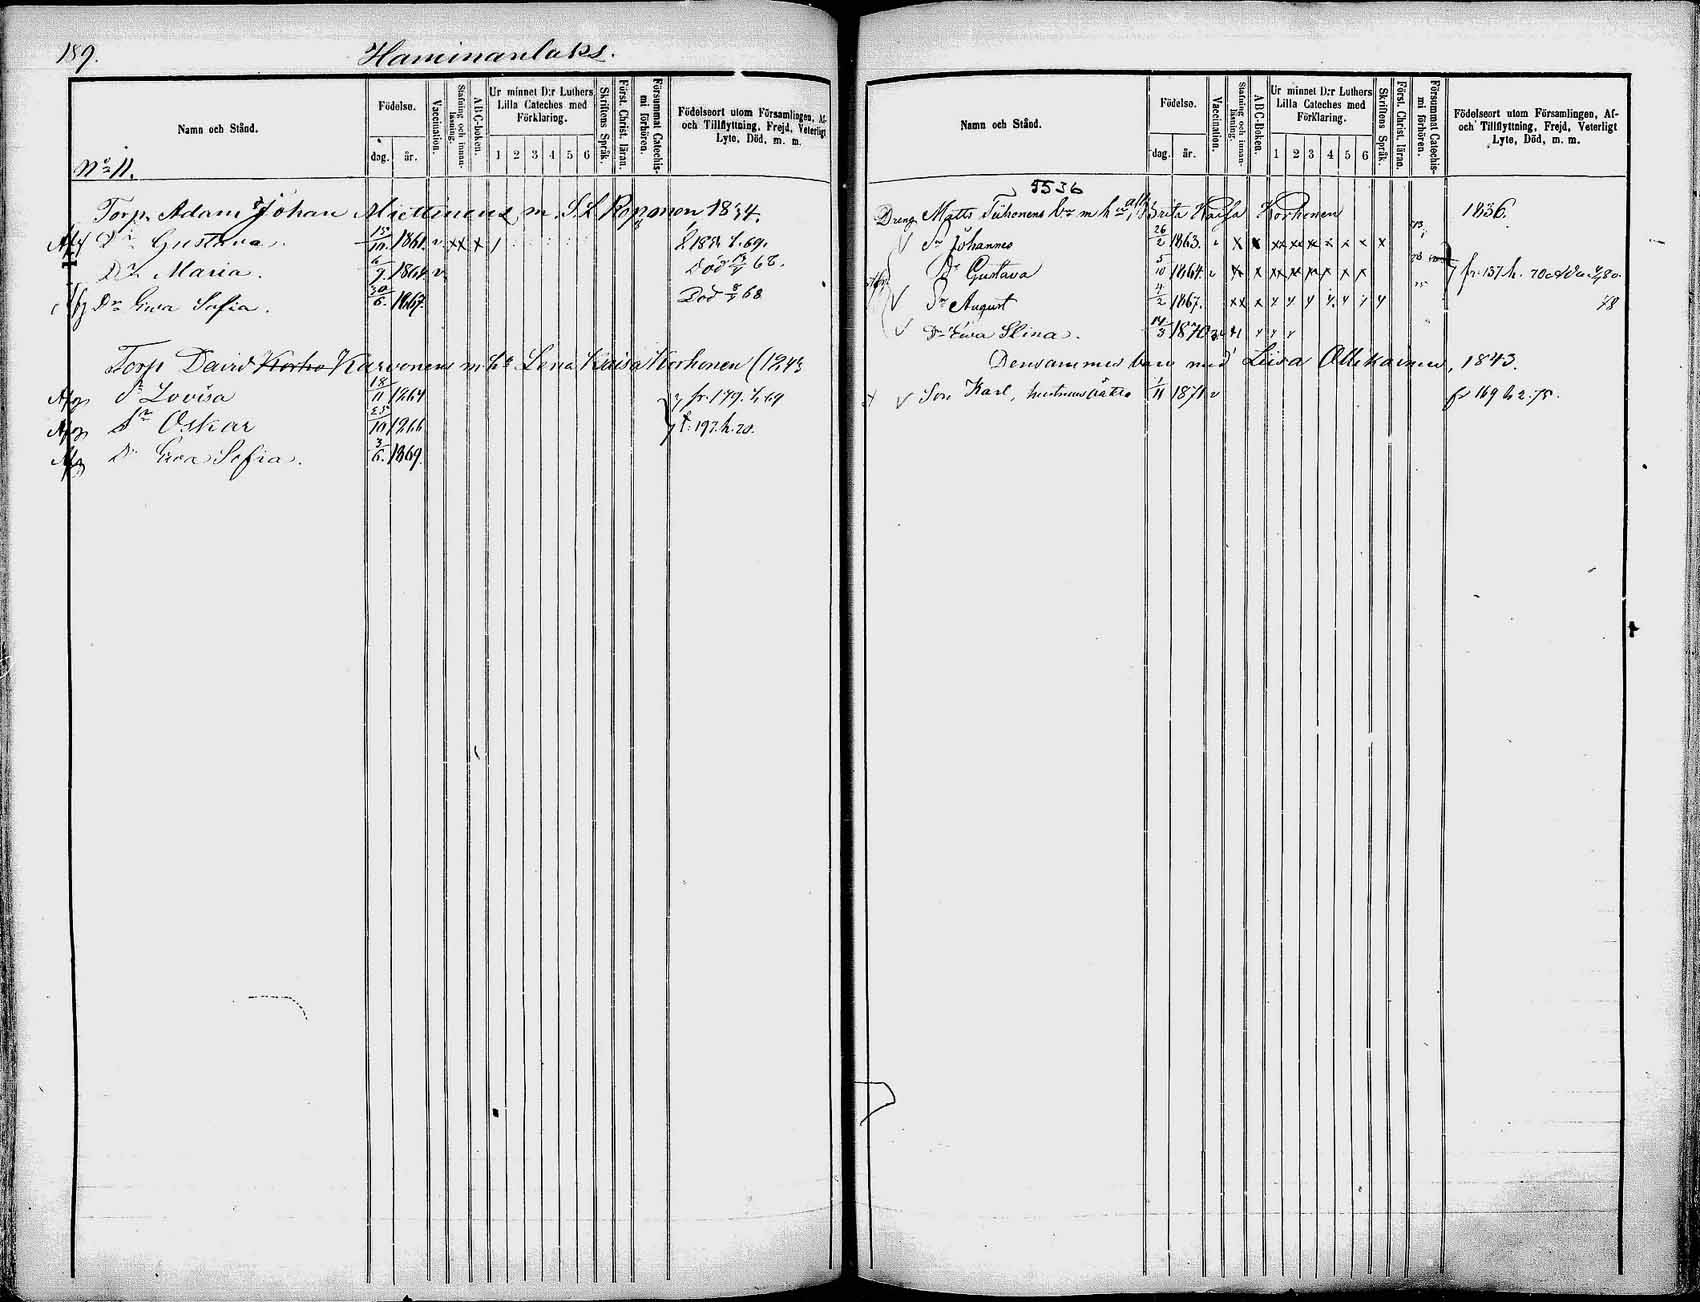 189.
Haminanlaks.
Namn och Stånd.
Födelse.
dag.
år.
Vaccination.
Stafning och innan-läsning.
ABC-boken.
Ur minnet D:r Luthers Lilla Cateches med Förklaring.
1 2 3 4 5 6
Skriftens Språk.
Först. Christ. läran.
Försummat Catechis-mi förhören.
Födelseort utom Församlingen, Af- och Tillflyttning, Frejd, Veterligt Lyte, Död, m. m.
No 11.
Torp. Adam Johan Miettinens m. S.L. Roponen 1834.
Dr Gustava. 15/10. 1861. v xx x /
Dr Maria. 6/9 1864 v Död 68.
Dr Ewa Sofia. 30/6. 1867. Död 68
Torp David Korho Karvonens m h. Lena Kaisa Korhonen (1243
Dr Lovisa 18/11 1864 fr. 179. 69
Sr Oskar 25/10 1266 f. 197. h. 20.
D Ewa Sofia. 3/6. 1869.
Namn och Stånd.
Födelse.
dag.
år.
Vaccination.
Stafning och innan-läsning.
ABC-boken.
Ur minnet D:r Luthers Lilla Cateches med Förklaring.
1 2 3 4 5 6
Skriftens Språk.
Först. Christ. läran.
Försummat Catechis-mi förhören.
Födelseort utom Församlingen, Af- och Tillflyttning, Frejd, Veterligt Lyte, Död, m. m.
5536
Dreng Matts Tiihonens br m h Brita Kaisa Korhonen 1836.
Sr Johannes 26/2 1863. v x x xx xx xx x x x x
Dr Gustava 5/10 1864. v xx x xx xx x x x x fr. 137. h. 70
Sr August 4/2 1867. xx x x x x x x x x 78
Dr Ewa Elina. 14/3 1870
Densammes barn med Liisa Ollikainen, 1843.
Son Karl, hustruns oäkta 1/11 1871 v 169 h 2. 75.